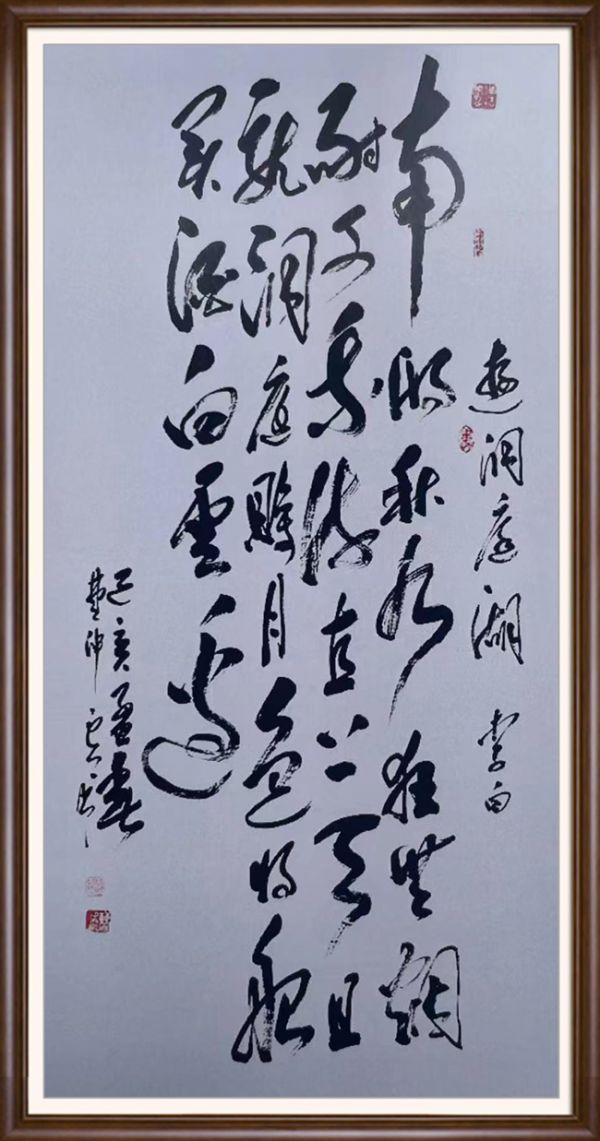 遊洞庭湖 李白
南湖秋水夜無煙
耐可乘流直上天且
就洞庭賒月色將船
買酒白雲邊
己亥孟春